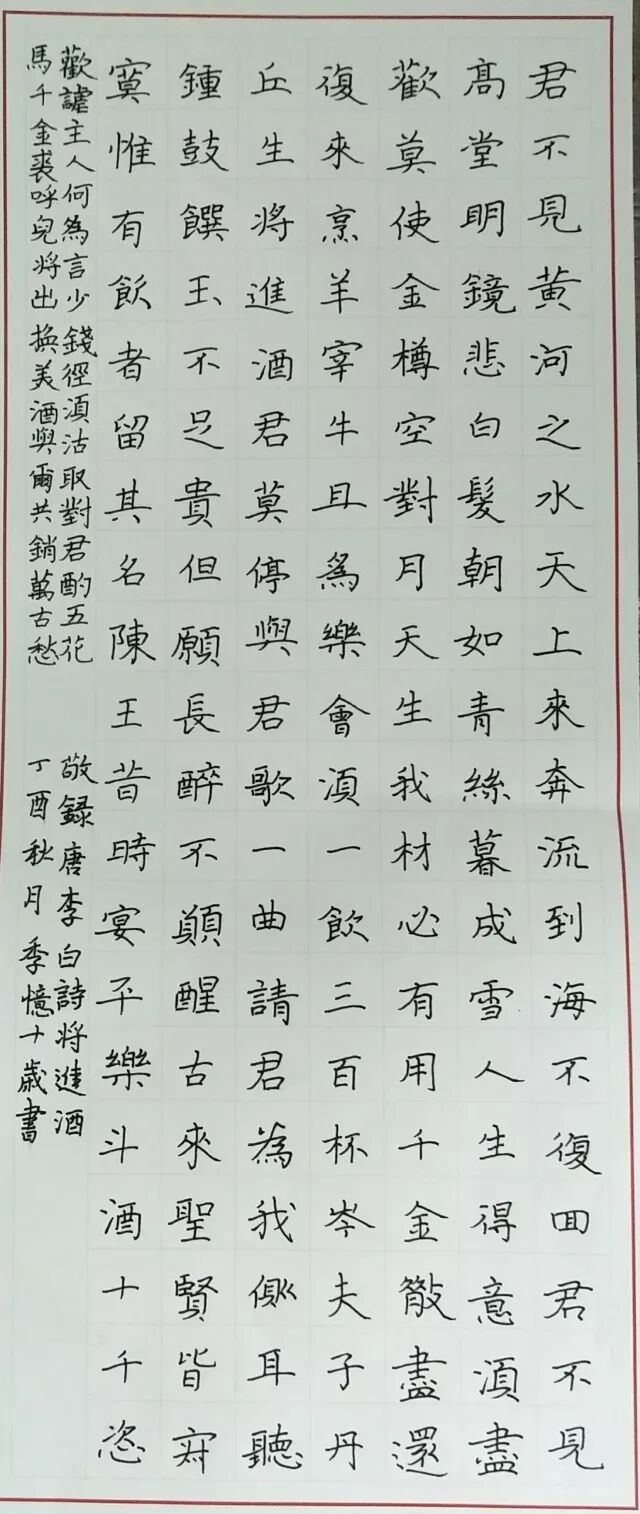 君不見黄河之水天上來奔流到海不復囬君不見
髙堂明鏡悲白髮朝如青絲暮成雪人生得意湏盡
歡莫使金樽空對月天生我材必有用千金散盡還
復來烹羊宰牛且爲樂會湏一飲三百杯岑夫子丹
丘生将進酒君莫停與君歌一曲請君為我側耳聽
鍾鼓饌玉不足貴但願長醉不願醒古來聖賢皆寂
寞惟有飲者留其名陳王昔時宴平樂斗酒十千恣
歡謔主人何為言少錢徑湏沽取對君酌五花
馬千金裘呼兒将出換美酒與爾共銷萬古愁
敬録唐李白詩将進酒
丁酉秋月季憶十歲書